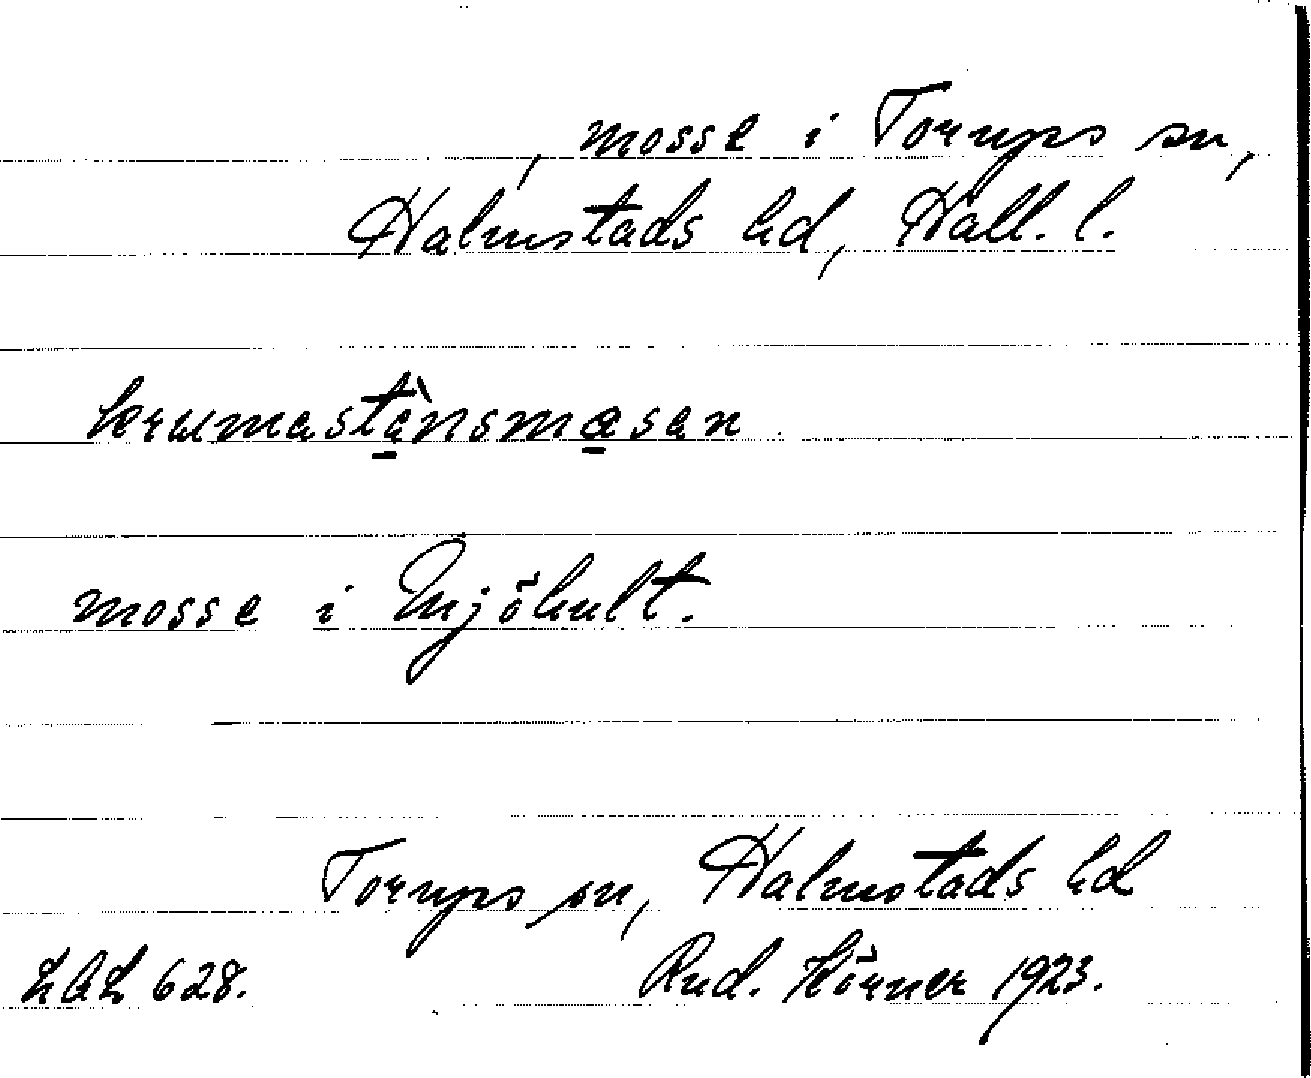 , mosse i Torups sn,
Halmstads hd, Hall. l.
krumastànsmasan
mosse i Mjöhult.
Torups sn, Halmstads hd
LAL 628. Rud. Körner 1923.